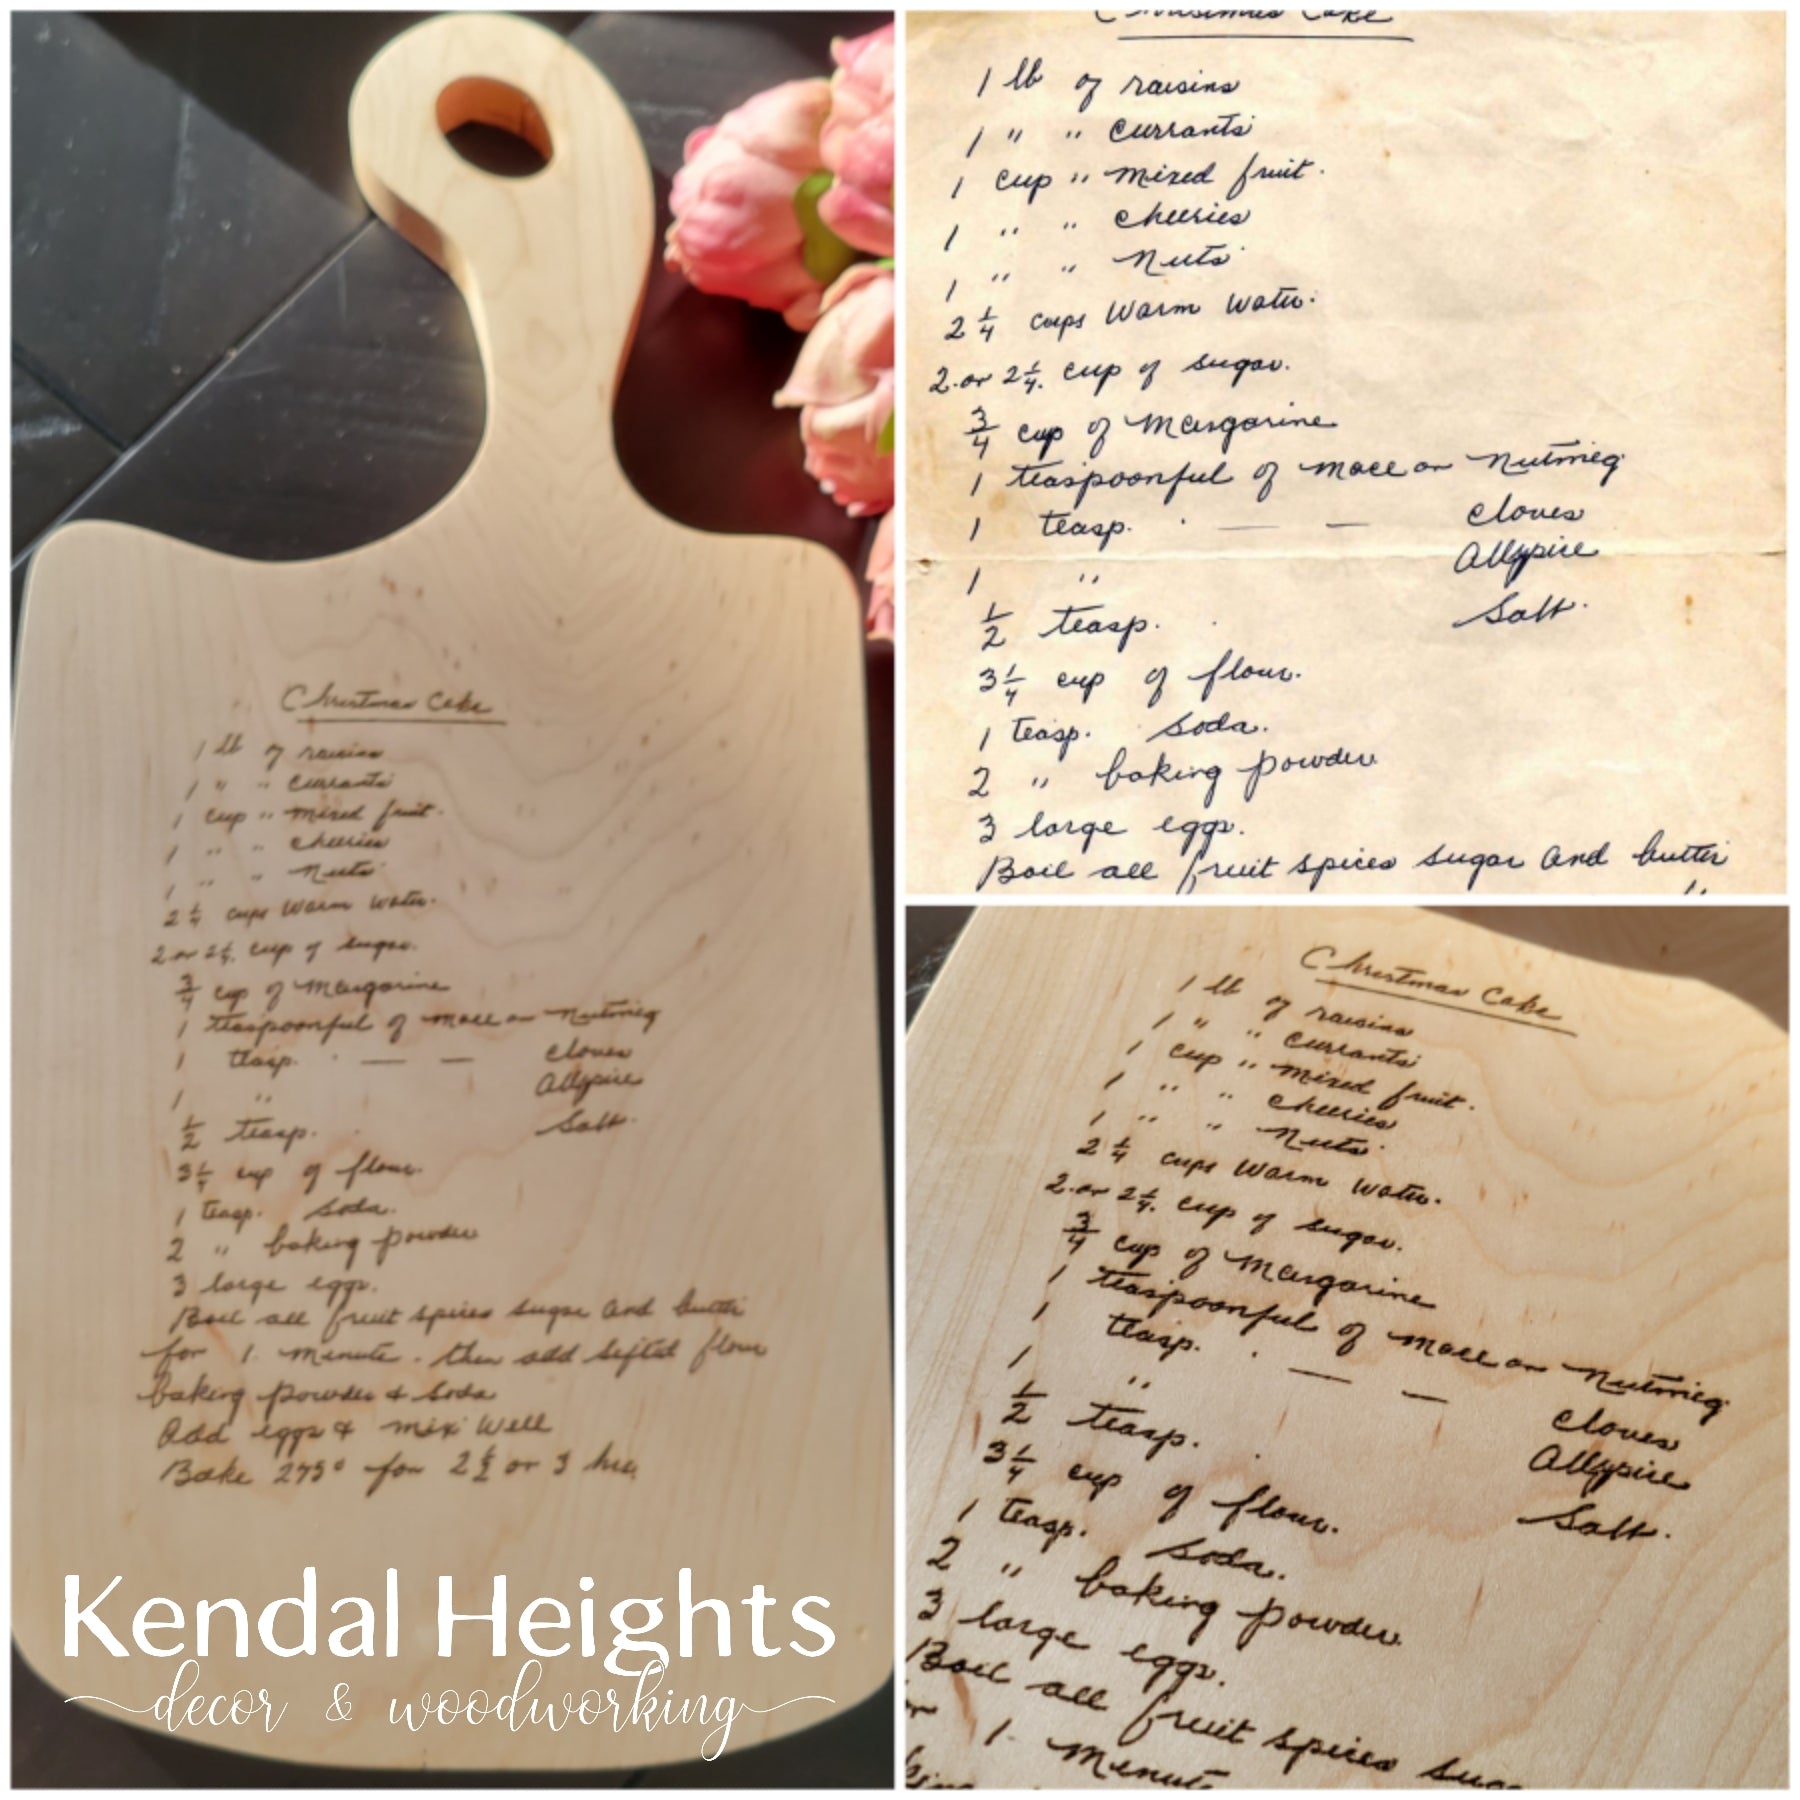 Christmas Cake
1 lb of raisins
1 " " currants
1 cup " mixed fruit.
1 " " cheeries
1 " " Nuts
2 1/4 cups Warm Water.
2 or 2 1/4 cup of sugar.
3/4 cup of Margarine
1 teaspoonful of mace or Nutmeg
1 teasp. — — cloves
1 " Allspice
1/2 teasp. Salt.
3 1/4 cup of flour.
1 teasp. Soda.
2 " baking powder
3 large eggs.
Boil all fruit spices sugar and butter
for 1 minute. then add sifted flour
baking powder & Soda
Add eggs & mix Well
Bake 275° for 2 1/2 or 3 hrs,
Kendal Heights
decor & woodworking
Christmas Cake
1 lb of raisins
1 " " currants
1 cup " mixed fruit.
1 " " cheeries
1 " " Nuts
2 1/4 cups Warm Water.
2 or 2 1/4 cup of sugar.
3/4 cup of Margarine
1 teaspoonful of mace or Nutmeg
1 teasp. — — cloves
1 " Allspice
1/2 teasp. Salt.
3 1/4 cup of flour.
1 teasp. Soda.
2 " baking powder
3 large eggs.
Boil all fruit spices sugar and butter
Christmas Cake
1 lb of raisins
1 " " currants
1 cup " mixed fruit.
1 " " cheeries
1 " " Nuts
2 1/4 cups Warm Water.
2 or 2 1/4 cup of sugar.
3/4 cup of Margarine
1 teaspoonful of mace or Nutmeg
1 teasp. — — cloves
1 " Allspice
1/2 teasp. Salt.
3 1/4 cup of flour.
1 teasp. Soda.
2 " baking powder
3 large eggs.
Boil all fruit spices
1 minute